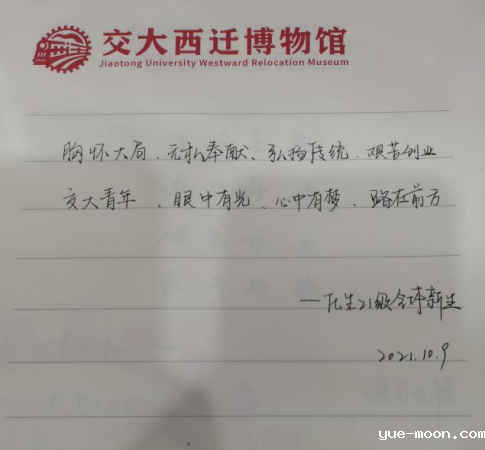 交大西迁博物馆
Jiaotong University Westward Relocation Museum
胸怀大局、无私奉献、弘扬传统、艰苦创业
交大青年、眼中有光、心中有梦、路在前方
——化生21级全体新生
2021.10.9
yue-moon.com